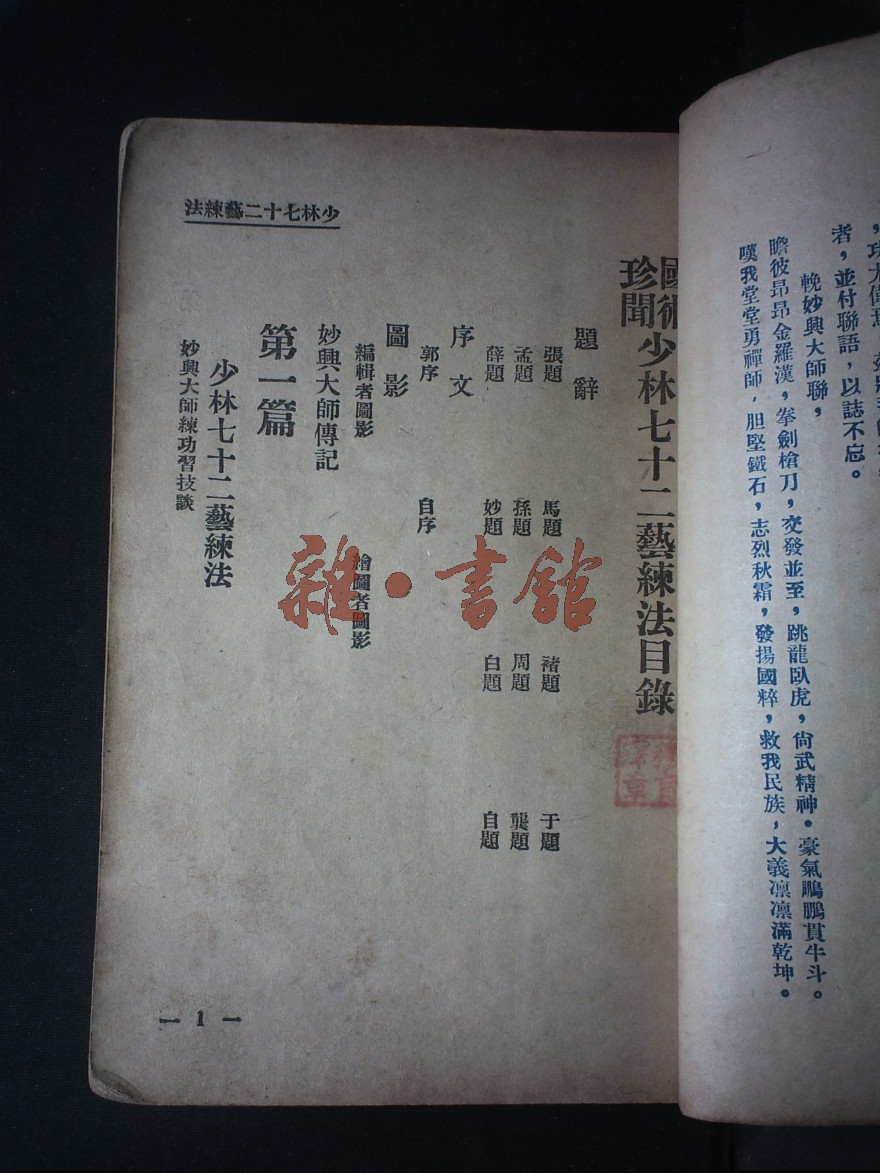 者，並付聯語，以誌不忘。
輓妙興大師聯，
瞻彼昂昂金羅漢，拳劍槍刀，交發並至，跳龍臥虎，尙武精神。豪氣鵬鵬貫牛斗。
嘆我堂堂勇禪師，胆堅鐵石，志烈秋霜，發揚國粹，救我民族，大義凛凛滿乾坤。
少林七十二藝練法
國術珍聞少林七十二藝練法目錄
題辭
張題 馬題 褚題 于題
孟題 孫題 周題 龔題
薛題 妙題 白題 自題
序文
郭序 自序
圖影
編輯者圖影 繪圖者圖影
妙興大師傳記
第一篇
少林七十二藝練法
妙興大師練功習技談
— 1 —
雜·書館